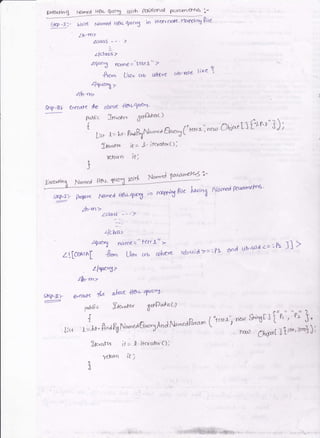 Executing Named HQL query with Positional parameters :-
Step-1:- write Named HQL query in hibernate mapping file
<h-m>
<class - - >
</class>
<query name="Hr1">
from User ub where ub-role like ?
</query>
</h-m>
Step-2:- execute the above HQL query.
public Iterator getData()
{
List l = ht.findByNamedQuery("
Iterator it = l.iterator();
return it;
}
Executing Named HQL query with Named parameters :-
Step-1:- prepare Named HQL query in mapping file having Named parameters.
<h-m>
<class - - ->
</class>
<query name="Hr1">
<![CDATA[ from User ub where ub.uid>=:P1 and ub.uid<=:P2 ]]>
</query>
</h-m>
Step-2:- execute the above HQL query.
public Iterator getData()
{
List l = ht.findByNamedQueryAndNamedParam (
Iterator it = l.iterator();
return it;
}